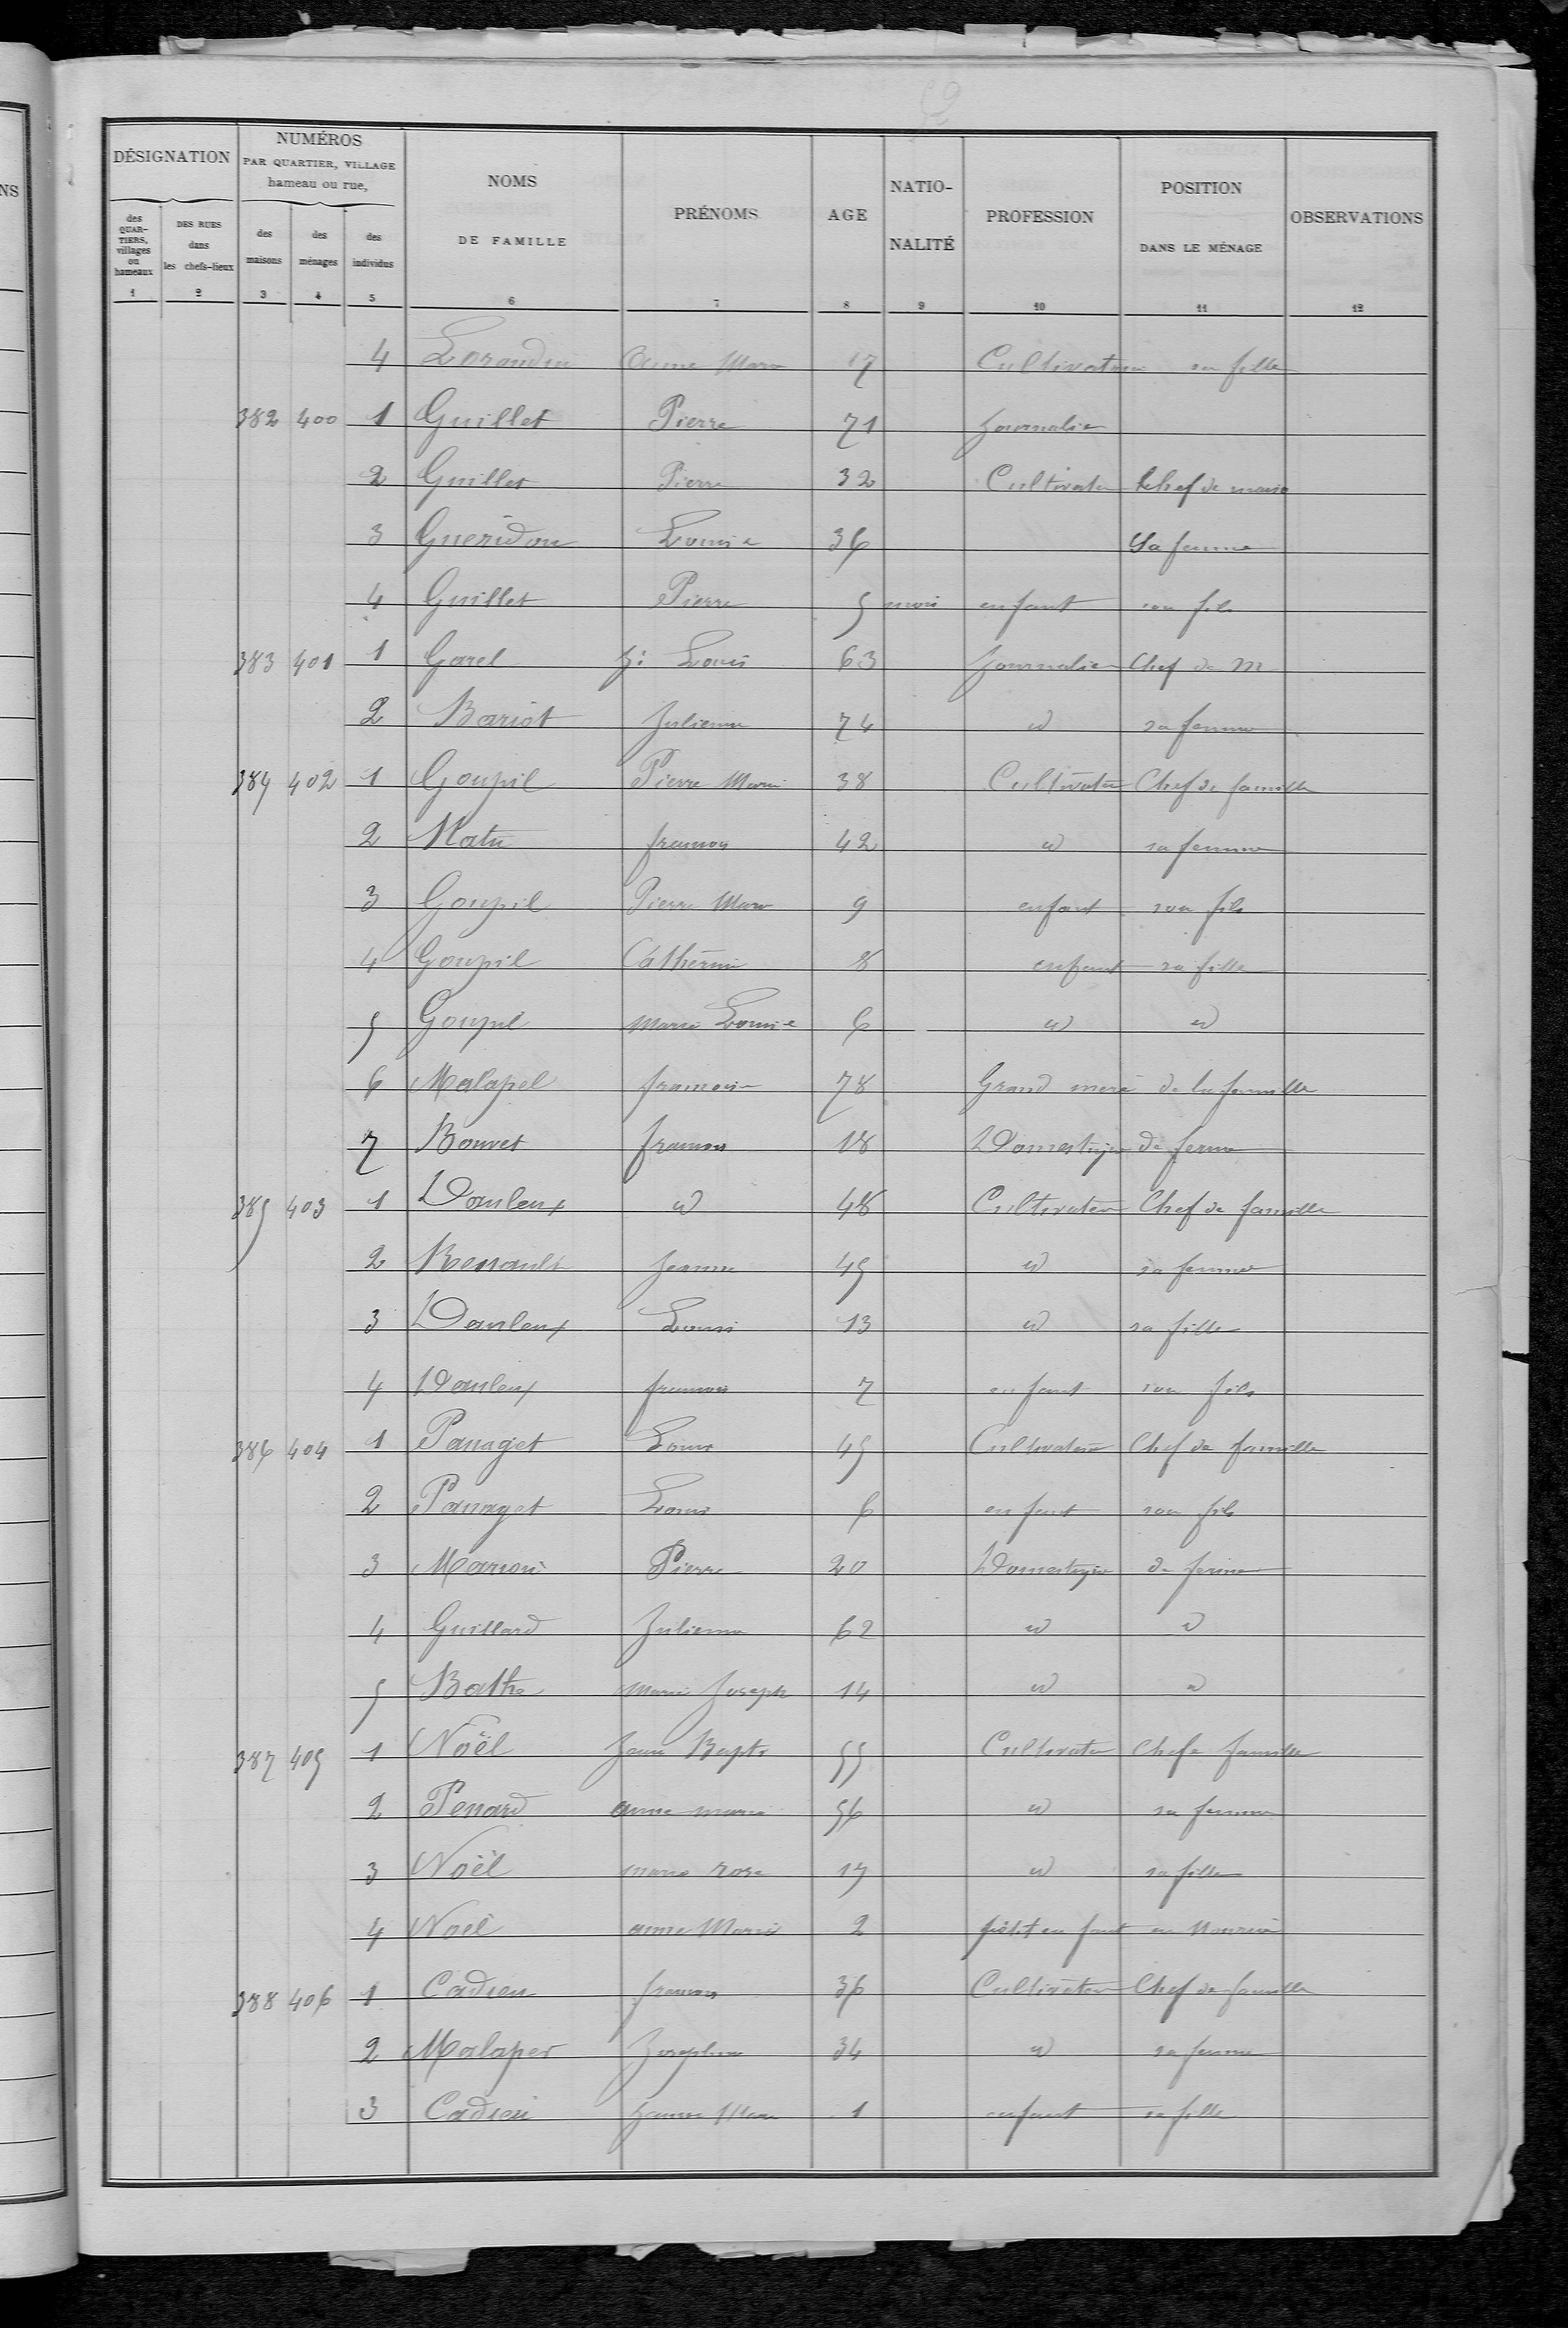 DÉSIGNATION NUMÉROS PAR QUARTIER, VILLAGE hameau ou rue, NOMS DE FAMILLE PRÉNOMS AGE NATIO-NALITÉ PROFESSION POSITION DANS LE MÉNAGE OBSERVATIONS
des QUAR-TIERS, villages ou hameaux DES RUES dans les chefs-lieux des maisons des ménages des individus
1 2 3 4 5 6 7 8 9 10 11 12
4 Lorandin Anne Marie 17 Cultivatrice sa fille
382 400 1 Guillet Pierre 71 Journalier
2 Guillet Pierre 32 Cultivateur Chef de
3 Gueridon Louise 36 Sa femme
4 Guillet Pierre 5 mois enfant son fils
383 401 1 Garel Louis 63 Journalier Chef de M
2 Bariot Julienne 74 id sa femme
384 402 1 Goupil Pierre Marie 38 Cultivateur Chef de famille
2 42 id sa femme
3 Goupil Pierre Marie 9 enfant son fils
4 Goupil Catherine 8 enfant sa fille
5 Goupil Marie Louise 6 id id
6 Malapel francoise 78 Grand mere de la famille
7 Bouvet francois 18 Domestique de ferme
385 403 1 Danleux id 48 Cultivateur Chef de famille
2 Renault Jeanne 45 id sa femme
3 Danleux Louise 13 id sa fille
4 Danleux francois 7 enfant son fils
386 404 1 Panaget Louis 45 Cultivateur Chef de famille
2 Panaget Louis 6 enfant son fils
3 Pierre 20 Domestique de ferme
4 Guillard Julienne 62 id id
5 Bathe Marie Joseph 14 id id
387 405 1 Noël Jean Bapte 55 Cultivateur Chef famille
2 Penard anne marie 56 id sa femme
3 Noël marie rose 15 id sa fille
4 Noël anne Marie 2 petit enfant en
388 406 1 Cadieu francois 36 Cultivateur Chef de famille
2 Malaper Josephine 34 id sa femme
3 Cadieu Jeanne Marie 1 enfant sa fille